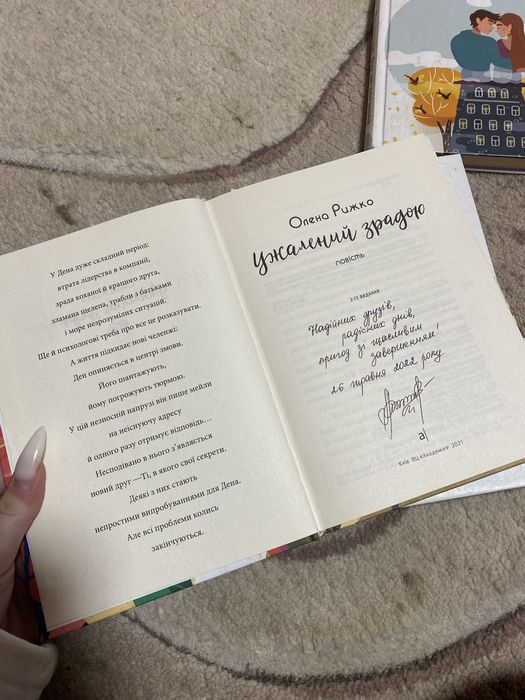 У Дена дуже складний період:
втрата лідерства в компанії,
зрада коханої й кращого друга,
зламана щелепа, трабли з батьками
і море незрозумілих ситуацій.
Ще й психологові треба про все це розказувати.
А життя підкидає нові челенжі:
Ден опиняється в центрі змови.
Його шантажують,
йому погрожують тюрмою.
У цій незносній напрузі він пише мейли
на неіснуючу адресу
й одного разу отримує відповідь…
Несподівано в нього з’являється
новий друг —Ті, в якого свої секрети.
Деякі з них стають
непростими випробуваннями для Дена.
Але всі проблеми колись
закінчуються.
Олена Рижко
Ужалений зрадою
повість
2-ге видання
Надійних друзів,
радісних днів,
пригод зі щасливим
завершенням!
26 травня 2022 року
а)
Київ ВЦ «Академія» 2021